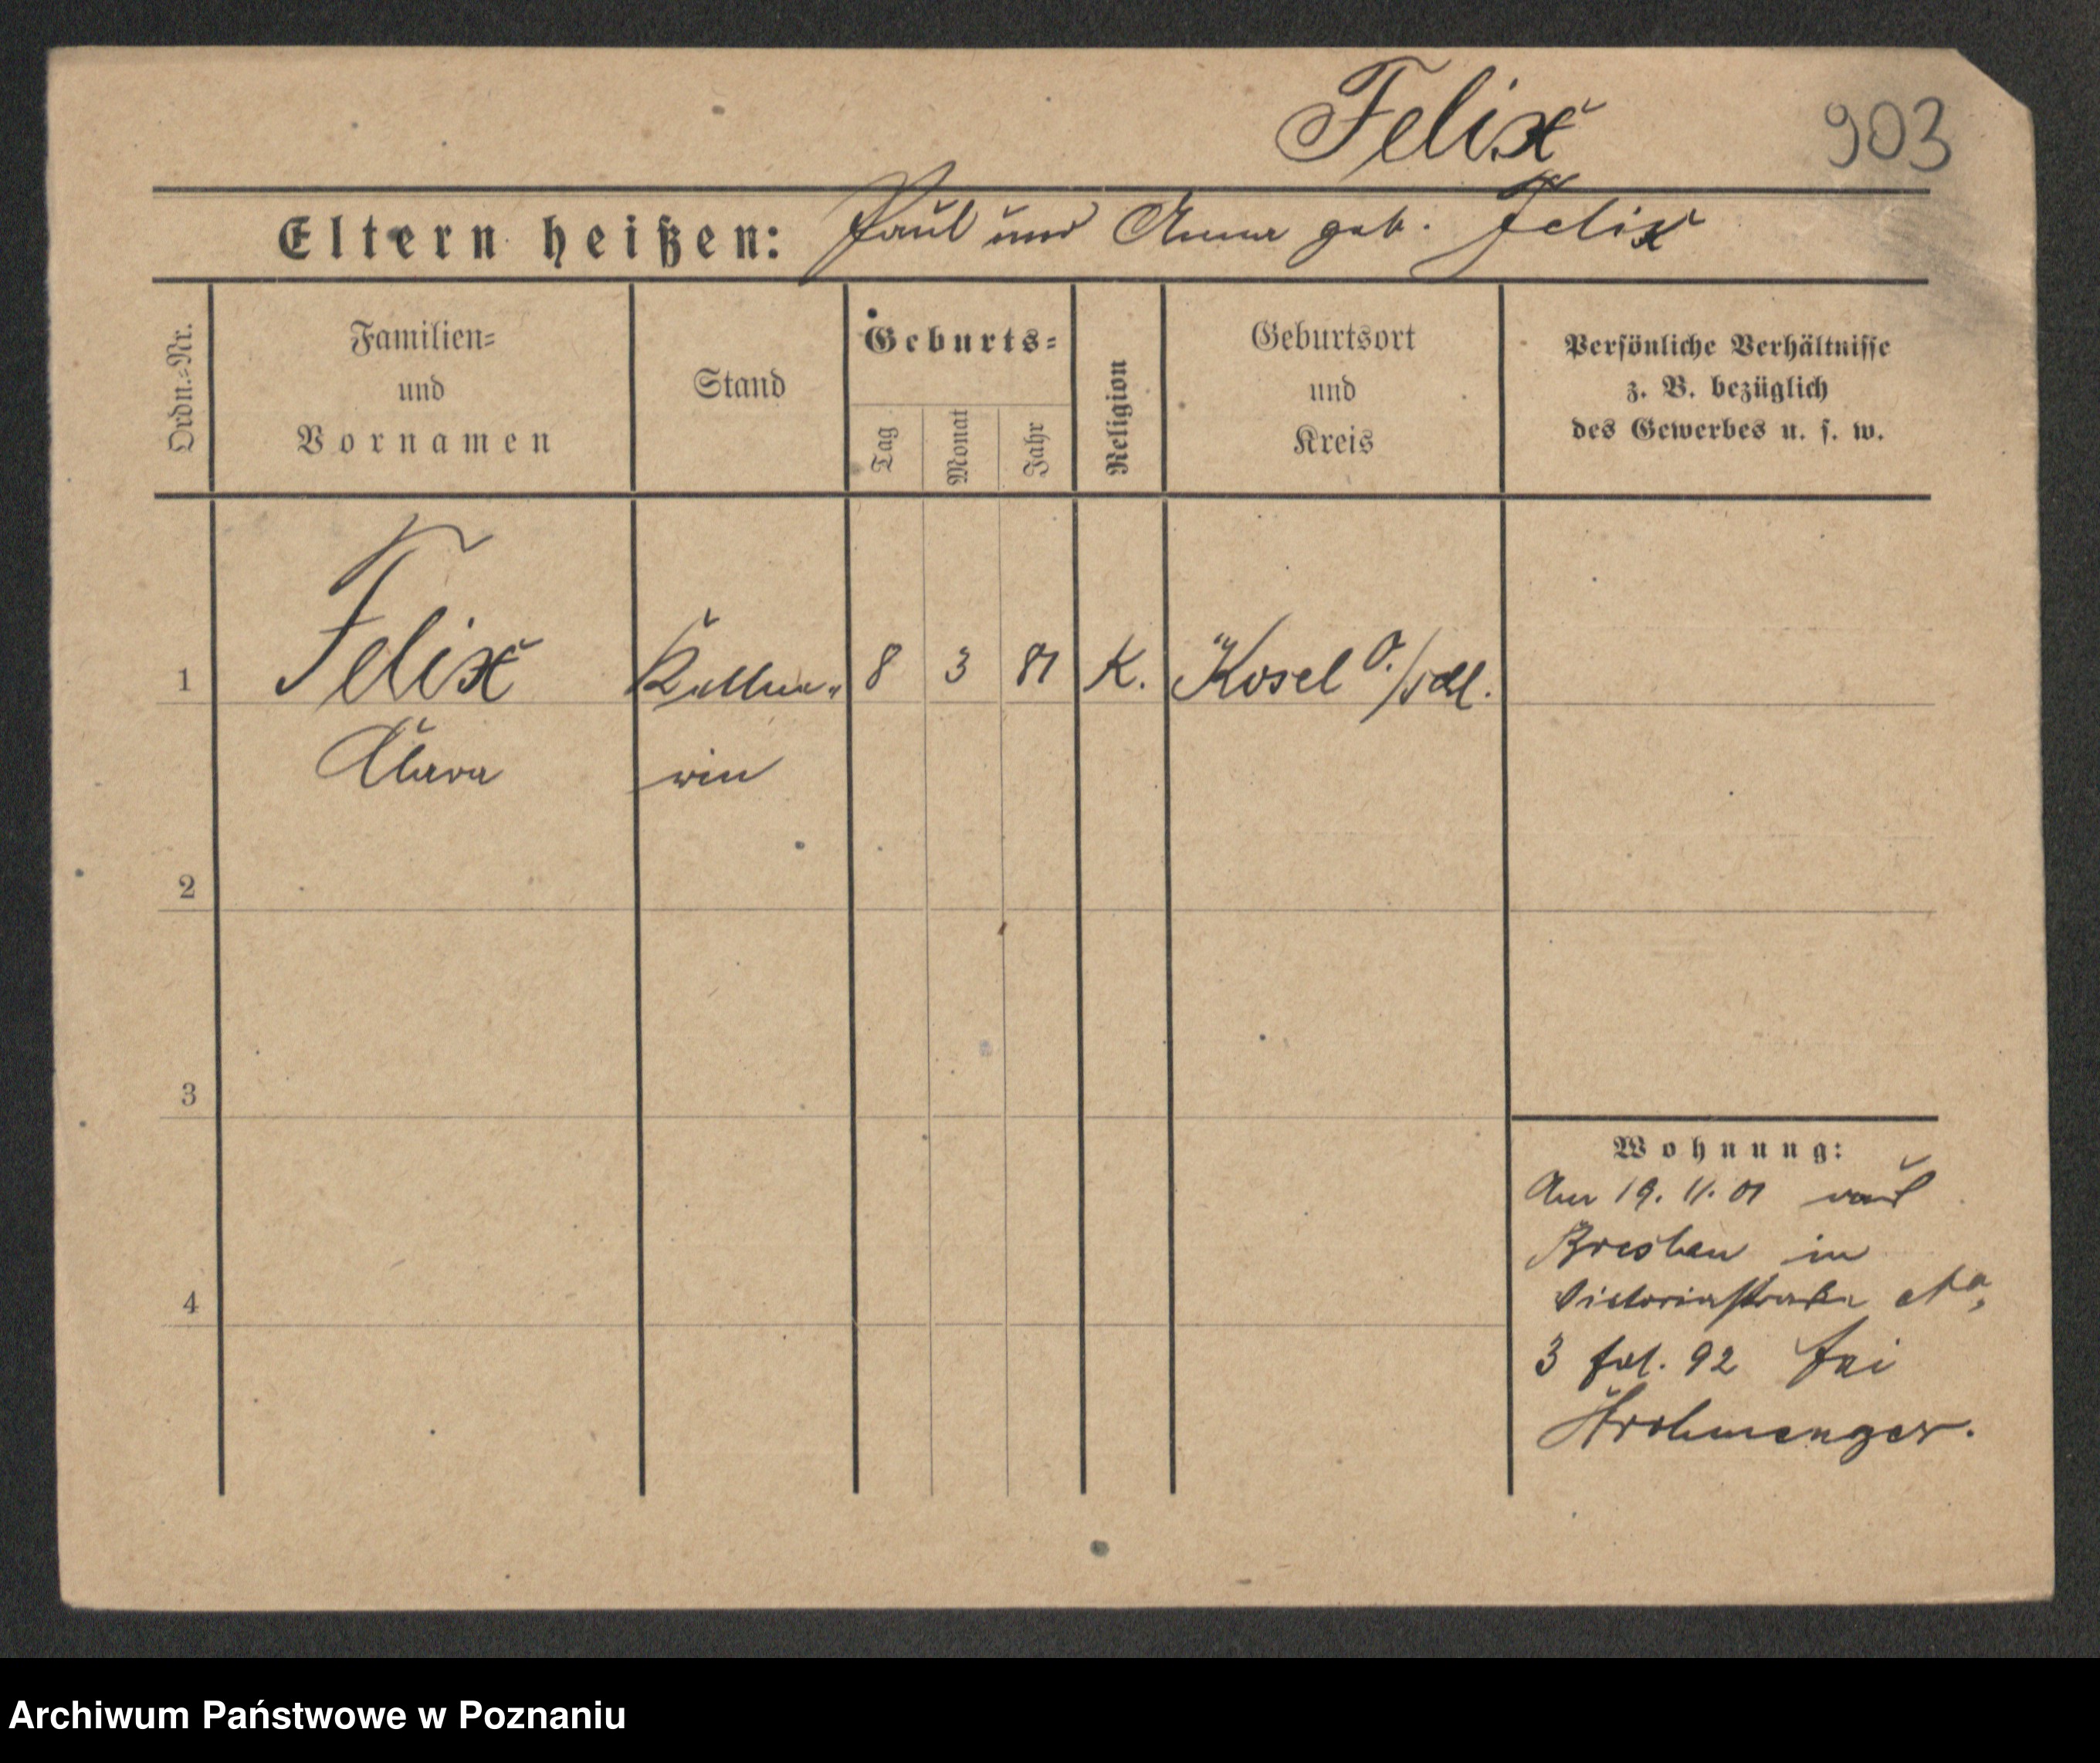 Felix 903
Eltern heißen: Paul und Anna geb. Felix
Ordn.-Nr.
Familien-
und
Vornamen
Stand
Geburts-
Tag
Monat
Jahr
Religion
Geburtsort
und
Kreis
Persönliche Verhältnisse
z. B. bezüglich
des Gewerbes u. s. w.
1 Felix Kellne- 8 3 81 K. Kosel O./schl.
Clara rin
2
3
4
Wohnung:
Am 19. 11. 01 nach
Breslau in
Victoriastraße No
3 fol. 92 bei
Krohmenger.
Archiwum Państwowe w Poznaniu